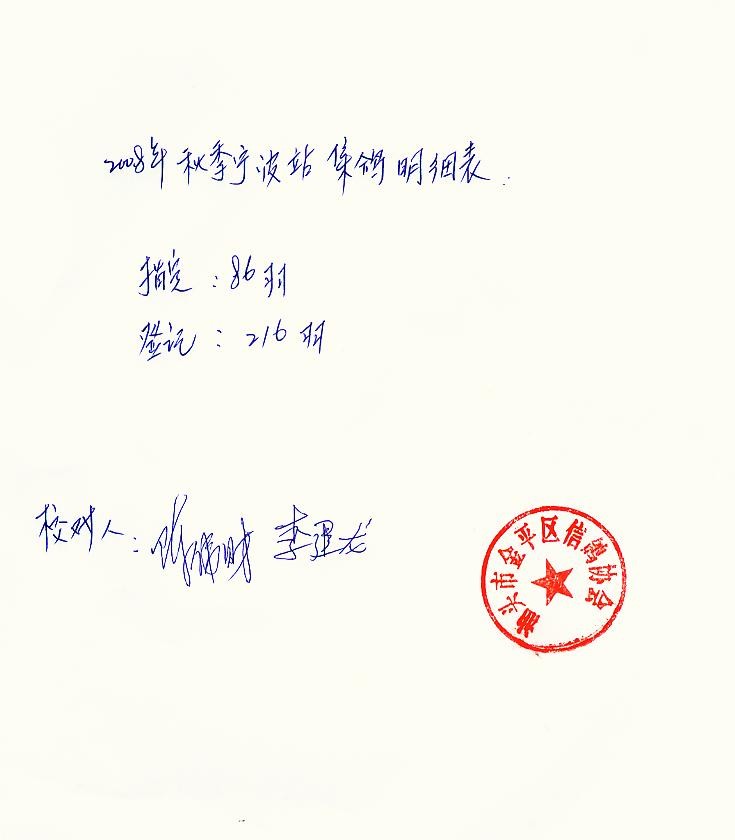 2008年秋季宁波站集鸽明细表.
指定:86羽
登记:216羽
校对人: 李建龙
汕头市金平区信鸽协会